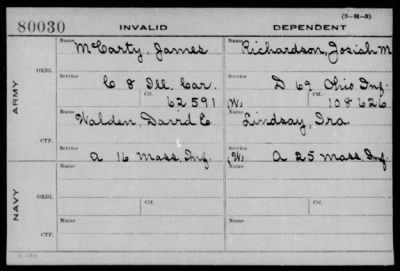 (3-H-5)
80030 INVALID DEPENDENT
Name Name
McCarty, James Richardson, Josiah M
ORIG.
Service Service
C 8 Ill. Cav. D 69 Ohio Inf.
Ctf. Ctf.
62591 (W) 108626
ARMY
Name Name
Walden, David C Lindsay, Ira
CTF.
Service Service
A 16 Mass. Inf. (W) A 25 Mass. Inf.
NAVY
Name Name
ORIG. Ctf. Ctf.
CTF. Name Name